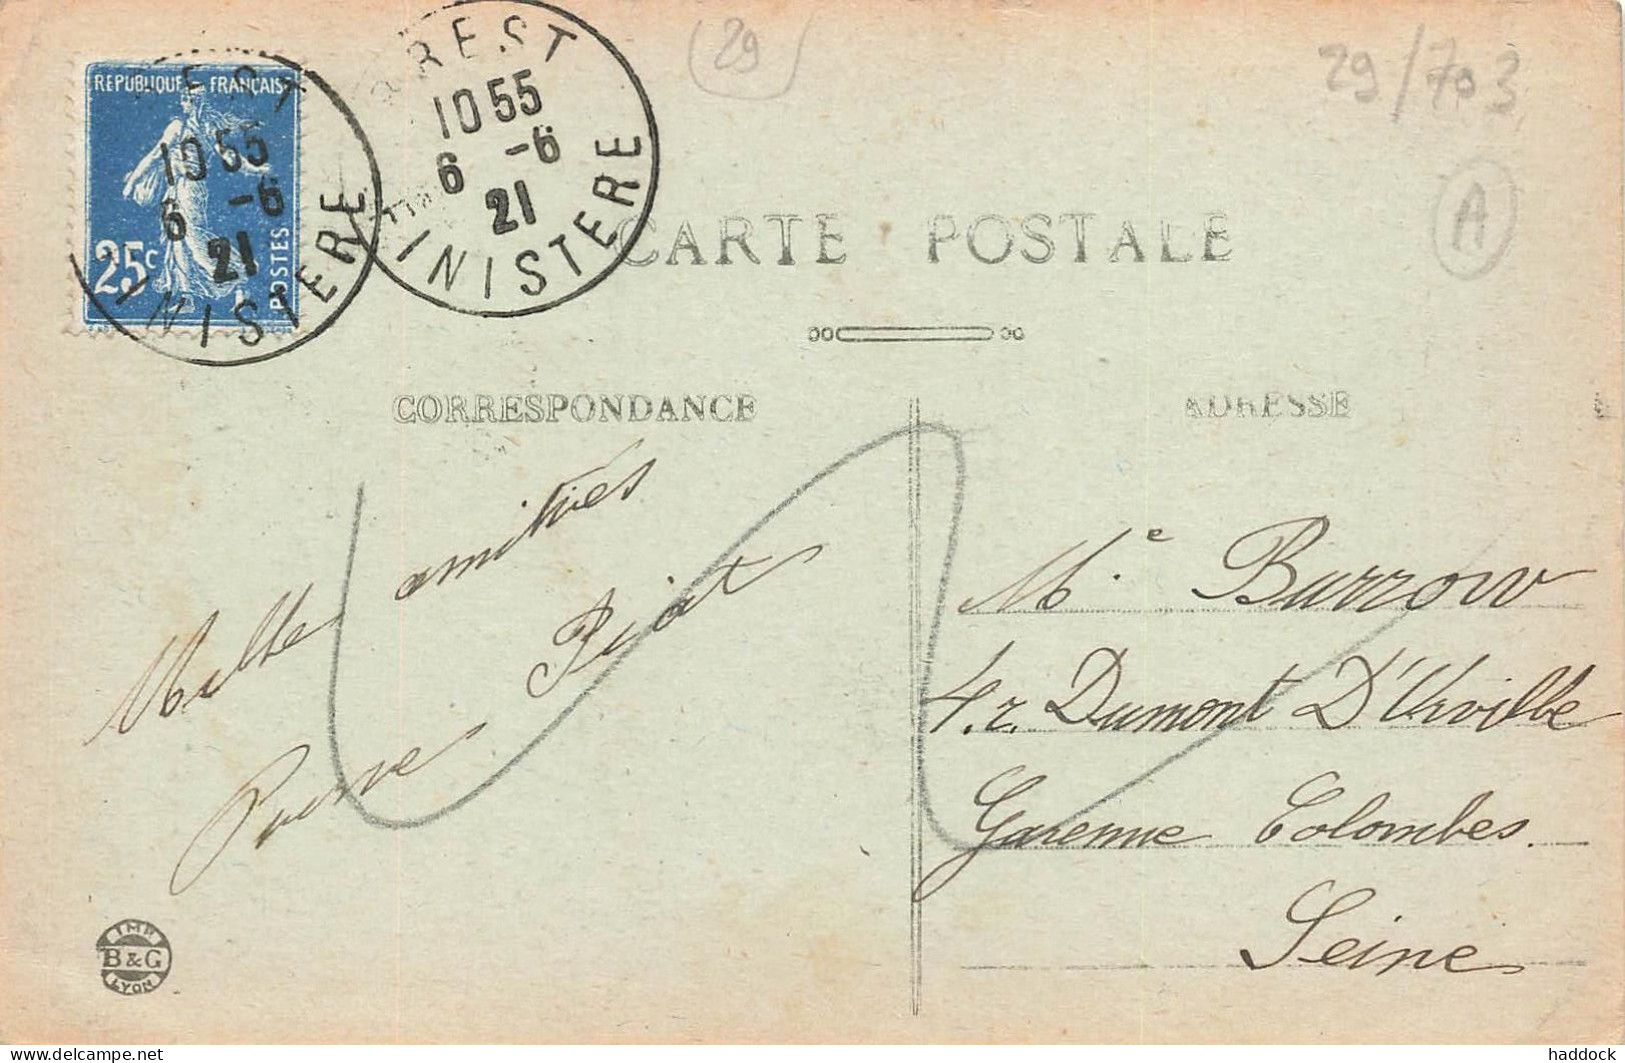 29
29/703
A
REPUBLIQUE FRANÇAISE
25c
POSTES
BREST
10 55
6 -6
21
FINISTERE
BREST
10 55
6 -6
21
FINISTERE
CARTE POSTALE
CORRESPONDANCE
ADRESSE
Mille amitiés
Pierre
Me Burrow
4 r. Dumont D'Urville
Garenne Colombes
Seine
IMP.
B&G
LYON
haddock